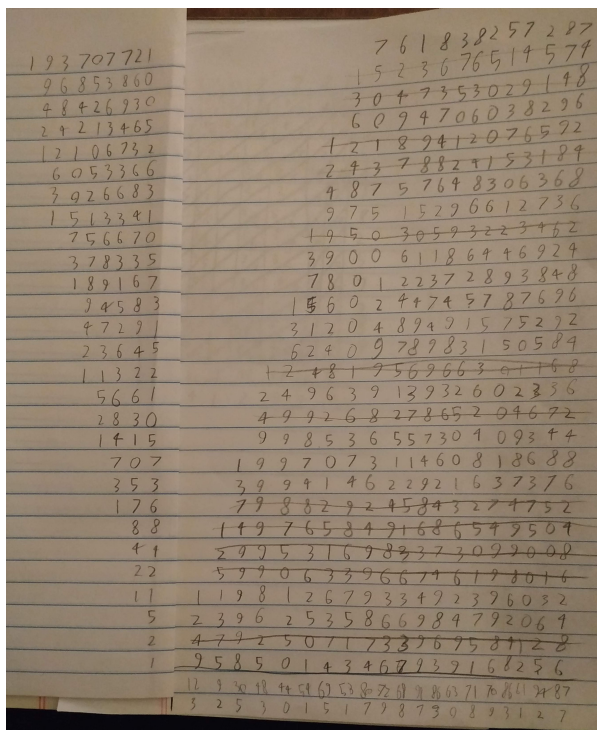 193707721 761838257287
96853860 1523676514574
48426930 3047353029148
24213465 6094706038296
12106732 12189412076592
6053366 24378824153184
3026683 48757648306368
1513341 97515296612736
756670 195030593223462
378335 390061186446924
189167 780122372893848
94583 1560244745787696
47291 3120489491575292
23645 6240978983150584
11322 12481956966301168
5661 24963913932602336
2830 49926827865204672
1415 99853655730409344
707 199707311460818688
353 399414622921637376
176 798829245843274752
88 1497658491686549504
44 2995316983373099008
22 5990633966746198016
11 11981267933492396032
5 23962535866984792064
2 47925071733969584128
1 95850143467939168256
3 2 5 3 0 1 5 1 7 9 8 7 3 0 8 9 3 1 2 7